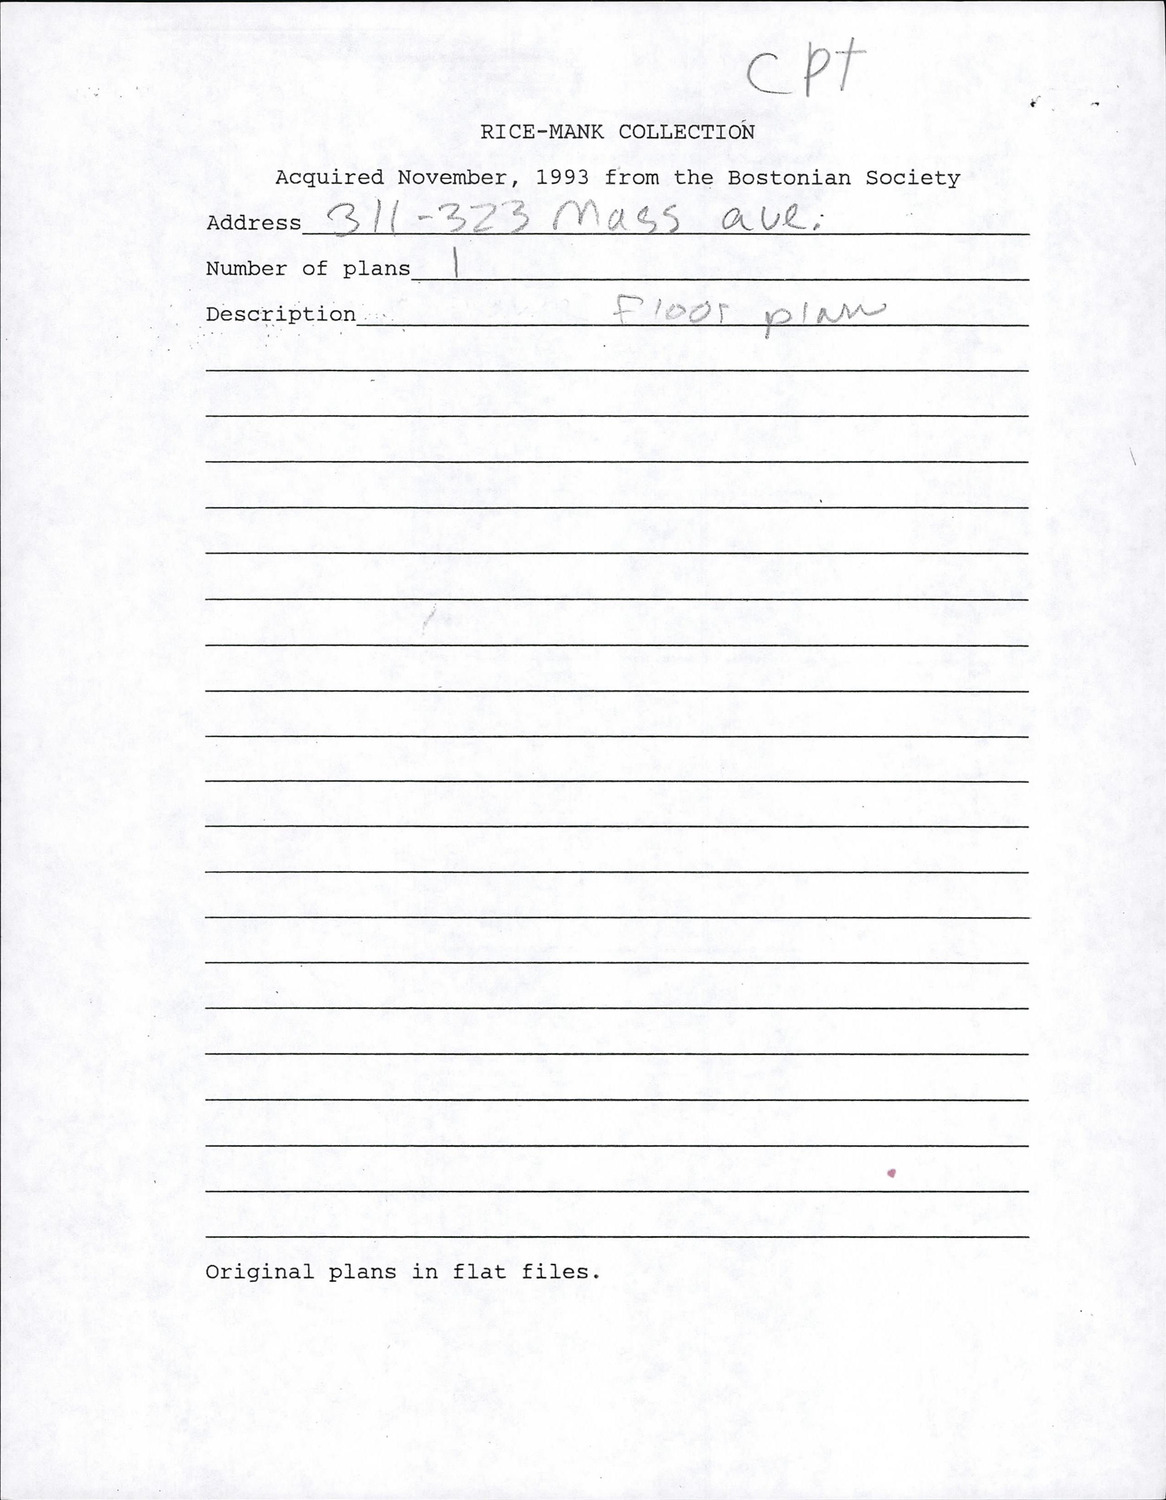 CPT
RICE-MANK COLLECTION
Acquired November, 1993 from the Bostonian Society
Address 311-323 Mass ave.
Number of plans 1
Description Floor plan
Original plans in flat files.